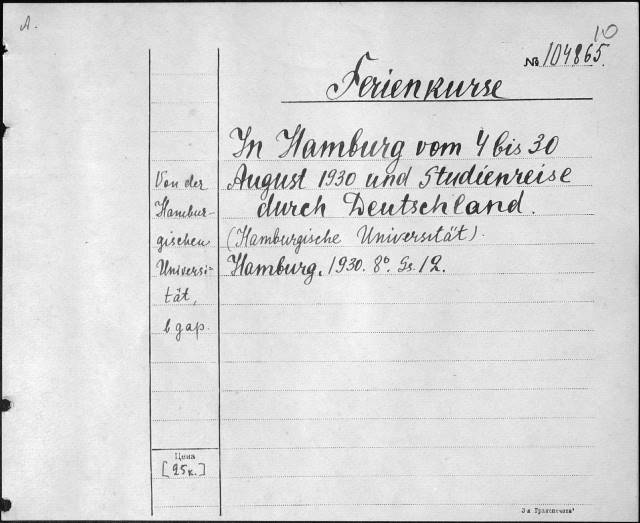 A.
10
№ 104865.
Ferienkurse
In Hamburg vom 4 bis 30
August 1930 und Studienreise
durch Deutschland.
(Hamburgische Universität).
Hamburg, 1930. 8°. Gs. 12.
Von der
Hambur-
gischen
Universi-
tät,
в дар.
Цена
[25к.]
3-я Транспечать